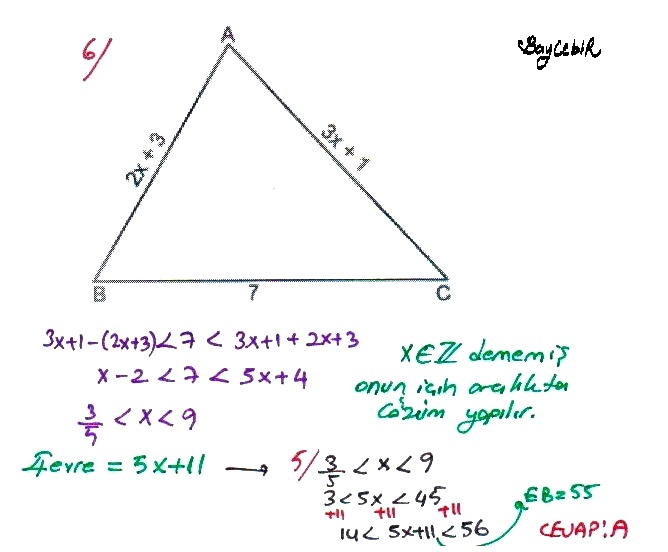 6/
BayCebiR
A
2x + 3
3x + 1
B
7
C
3x+1-(2x+3)<7 < 3x+1+2x+3
x-2 < 7 < 5x+4
3/5 < x < 9
x∈Z dememiş
onun için aralıkta
Çözüm yapılır.
Çevre = 5x+11 → 5/ 3/5 < x < 9
3 < 5x < 45
+11 +11 +11
14 < 5x+11 < 56
EB=55
CEVAP: A